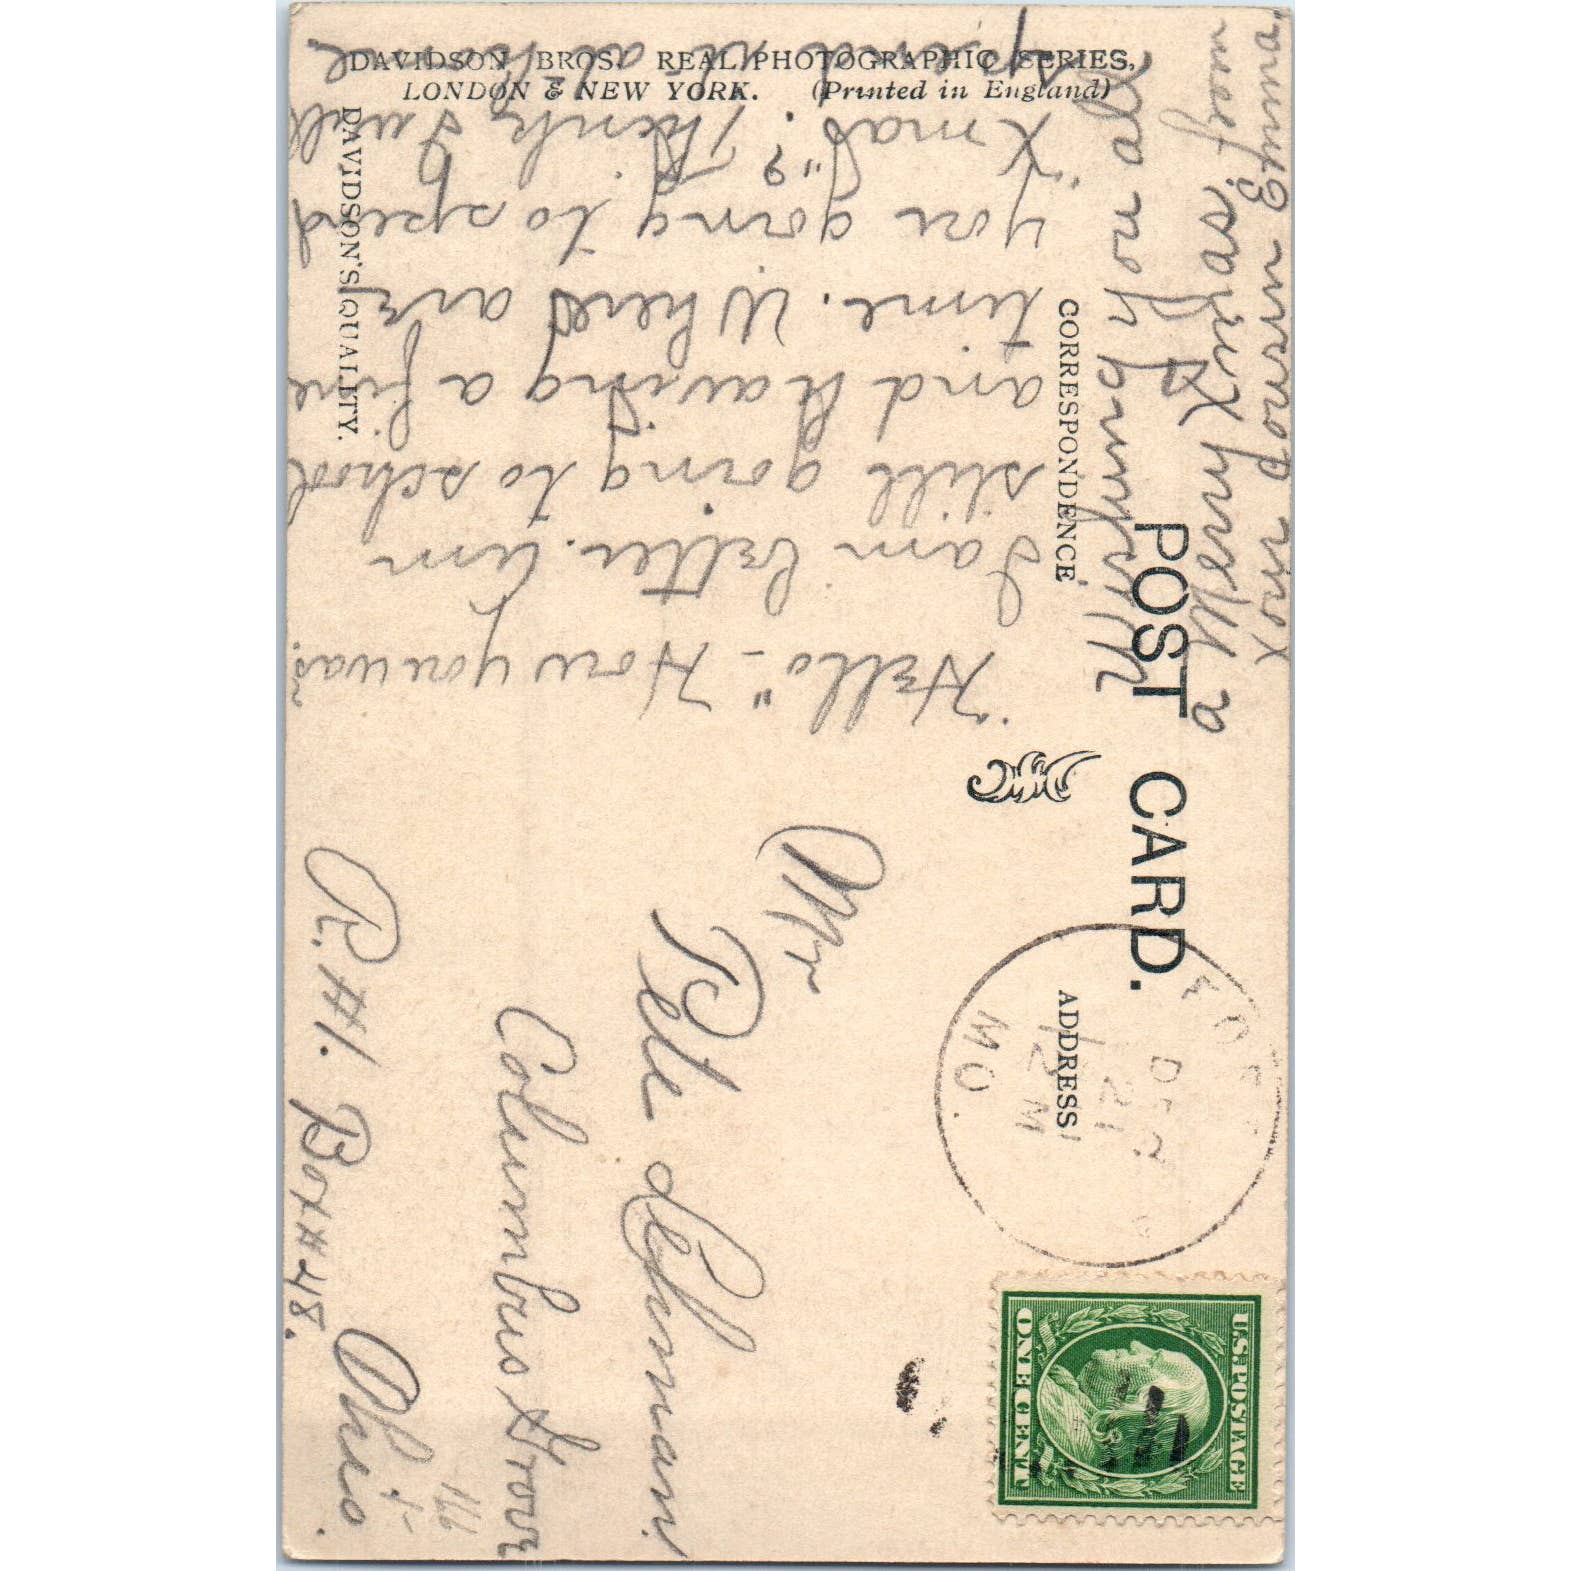 POST CARD.
CORRESPONDENCE
ADDRESS
DAVIDSON BROS. REAL PHOTOGRAPHIC SERIES,
LONDON & NEW YORK. (Printed in England)
DAVIDSON'S QUALITY.
U.S. POSTAGE
ONE CENT
DEC
21
12 M
MO.
"Hello" - How you was.
I am better. Am
still going to school
and having a fine
time. Where are
you going to spend
"Xmas"? Think I will
spend at home
Wishing you a
a Merry Xmas &
New Year.
Your Cousin Emma
Mr
Pete Lehman
Columbus Grove
Ohio.
R.H. Box #48.